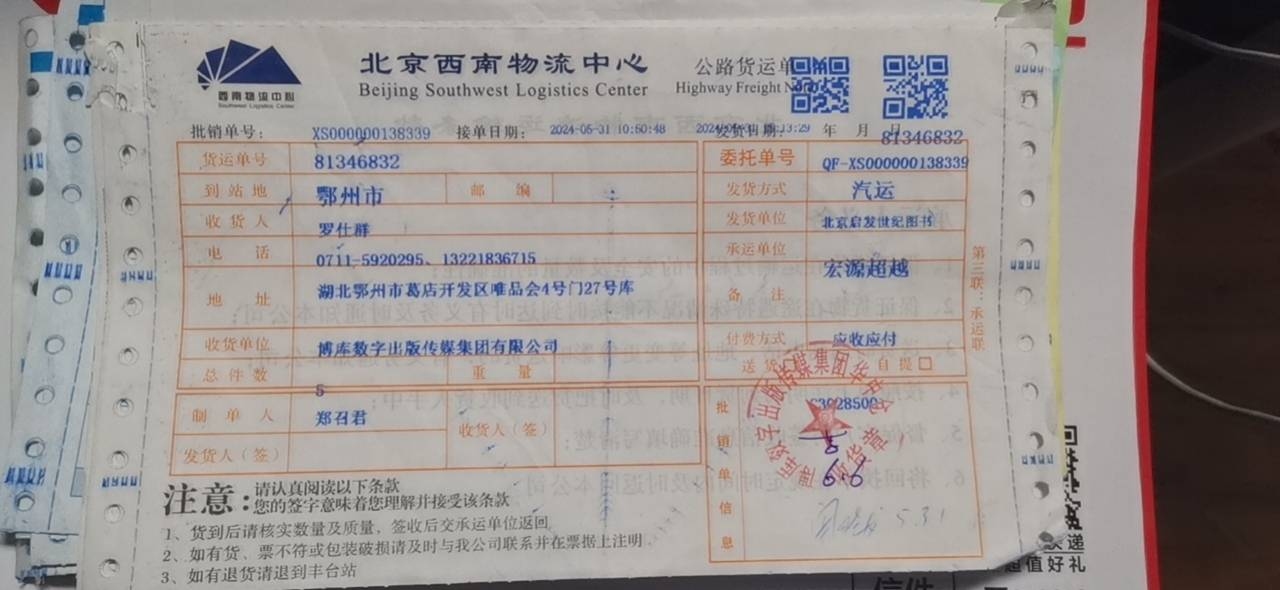 北京西南物流中心
公路货运单
西南物流中心
Southwest Logistics Center
Beijing Southwest Logistics Center
Highway Freight
批销单号: XS000000138339 接单日期: 2024-05-31 10:50:48 发货日期: 年 月 日
81346832
货运单号 81346832 委托单号 QF-XS000000138339
到站地 鄂州市 邮编 发货方式 汽运
收货人 罗仕群 发货单位 北京启发世纪图书
电话 0711-5920295、13221836715 承运单位 宏源超越
地址 湖北鄂州市葛店开发区唯品会4号门27号库 备注
收货单位 博库数字出版传媒集团有限公司 付费方式 应收应付
总件数 5 重量 送货 自提
制单人 郑召君 收货人(签) 批销单信息
发货人(签)
第三联:承运联
注意:请认真阅读以下条款
您的签字意味着您理解并接受该条款
1、货到后请核实数量及质量,签收后交承运单位返回
2、如有货、票不符或包装破损请及时与我公司联系并在票据上注明
3、如有退货请退到丰台站
5.31
超值好礼